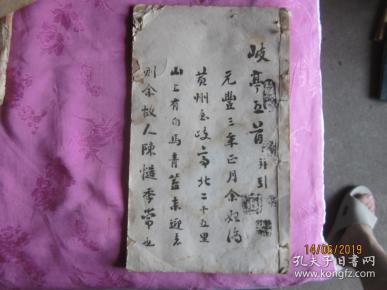 岐亭五首并引
元豐三年正月余始謫
黄州至岐亭北二十五里
山上有白馬青蓋來迎者
則余故人陳慥季常也
14/06/2019
孔夫子旧书网